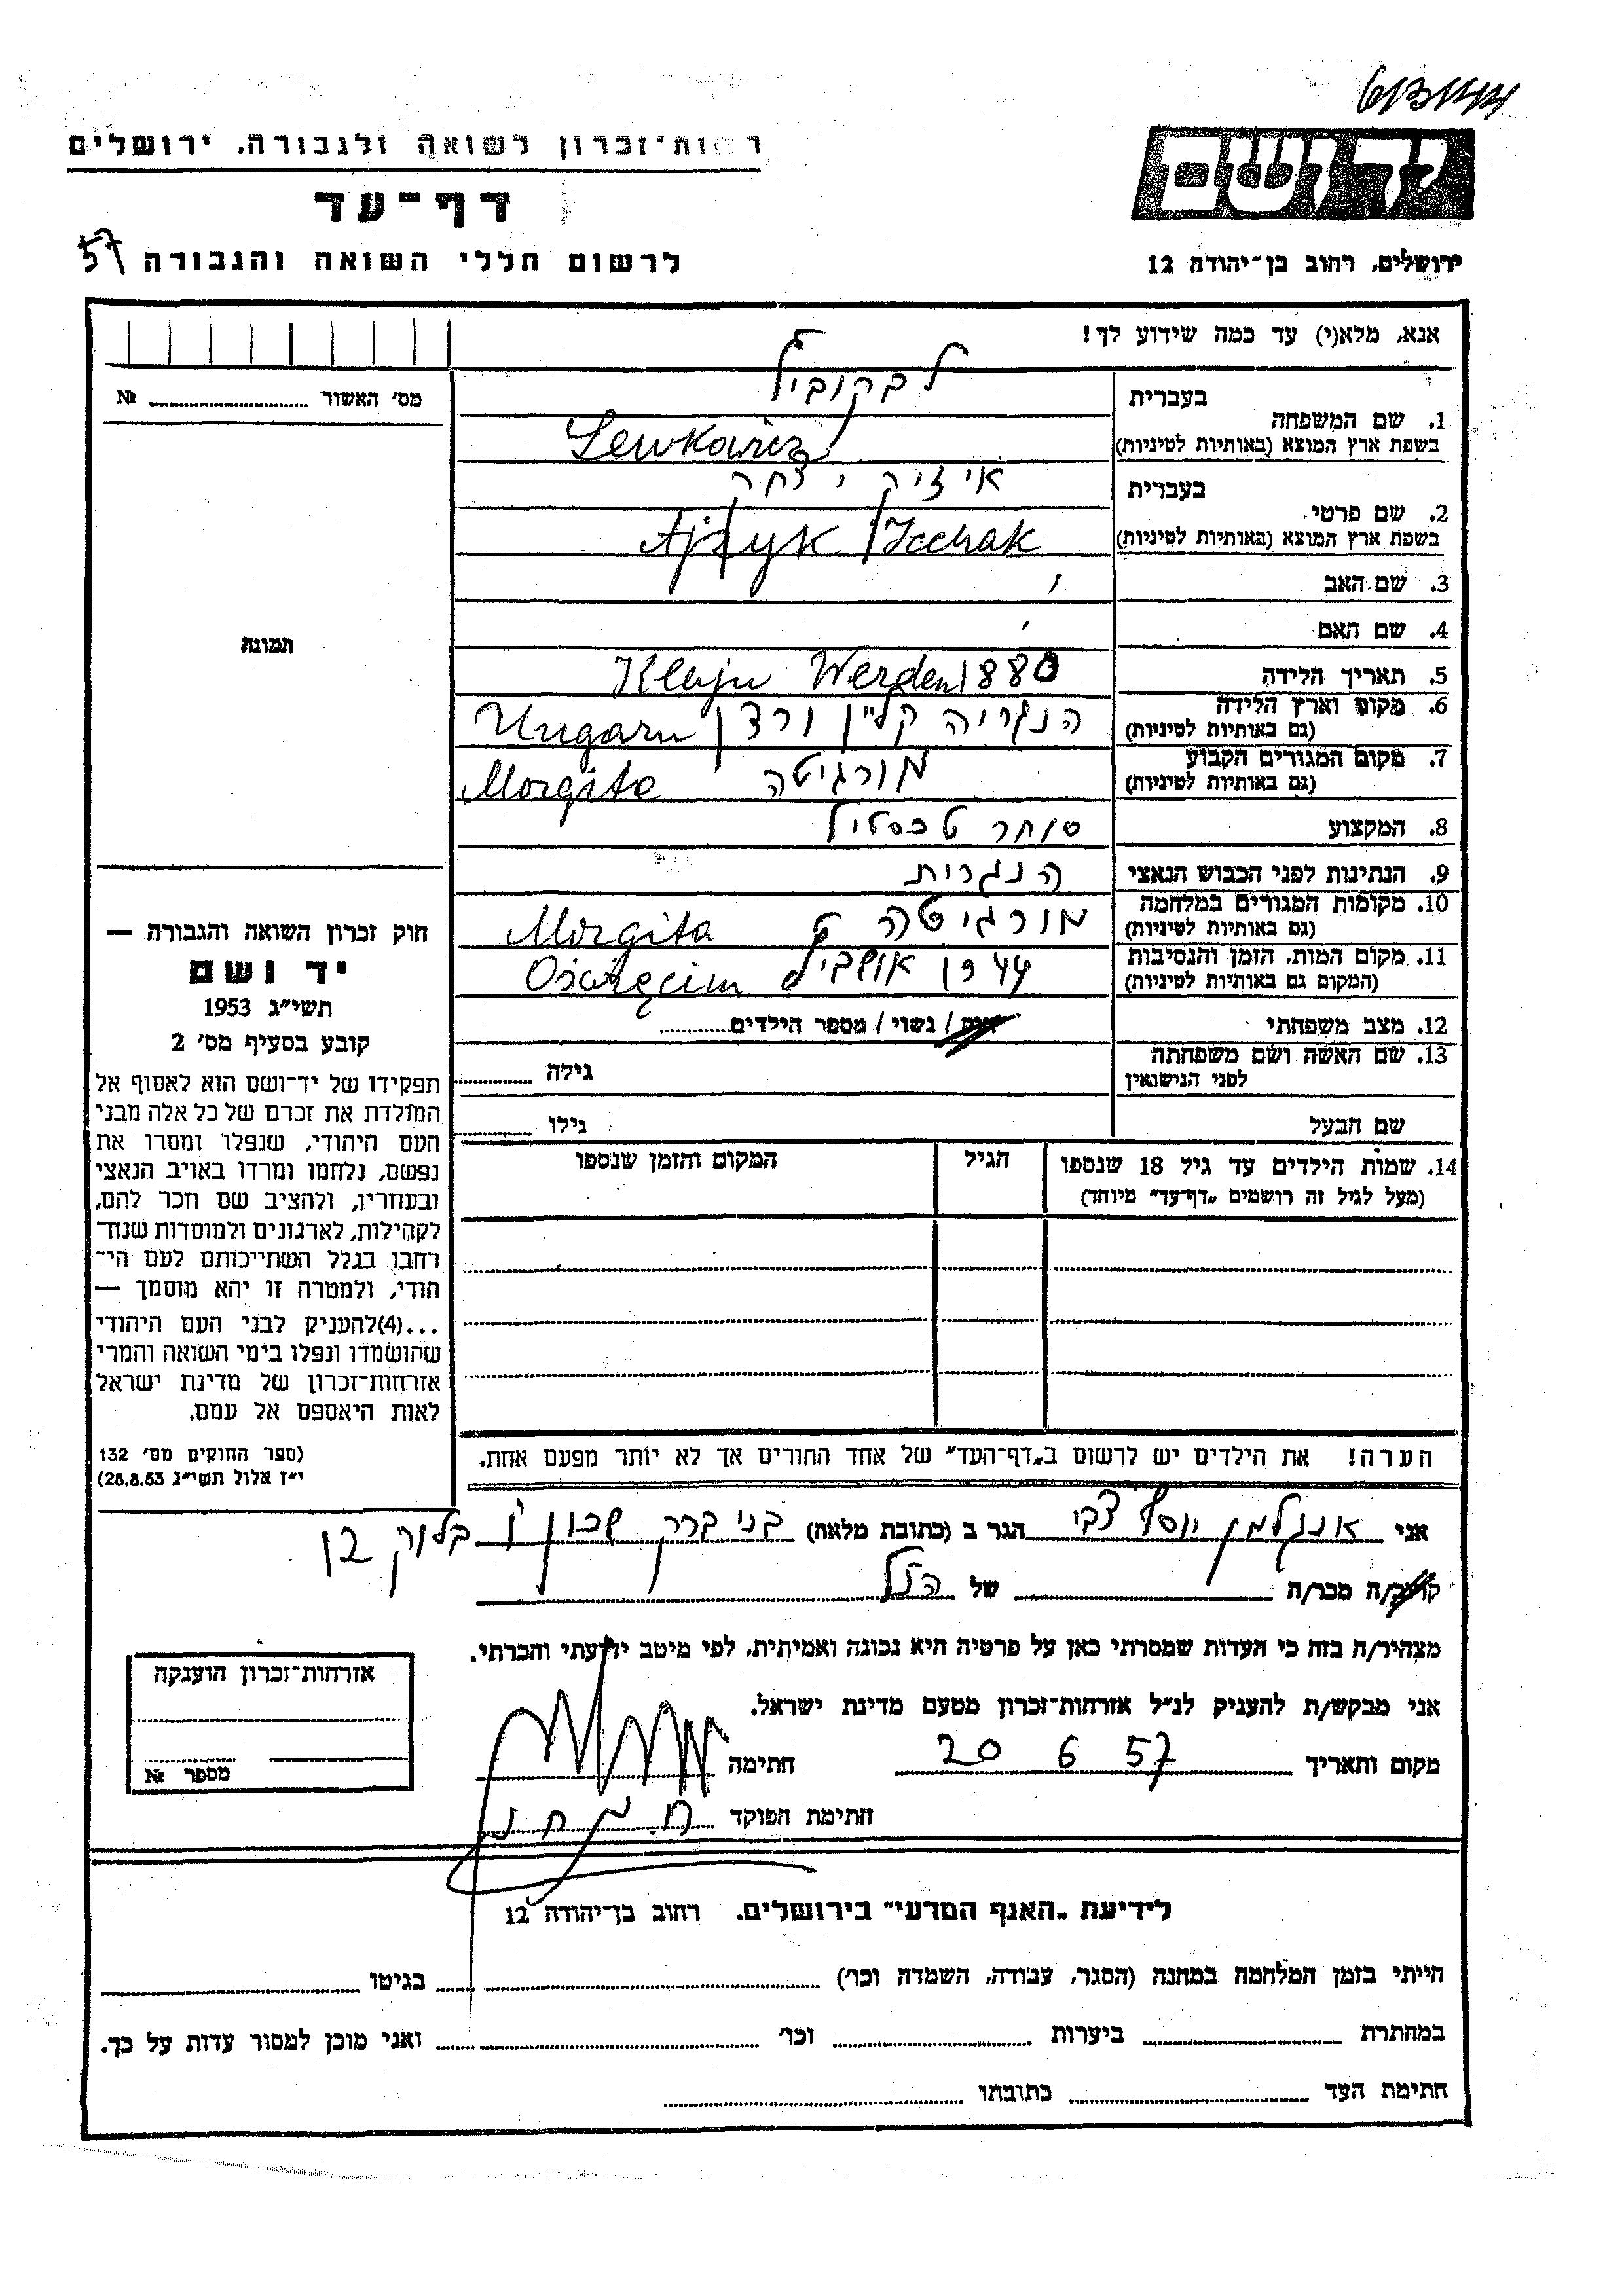 רשות־זכרון לשואה ולגבורה, ירושלים
דף־עד
לרשום חללי השואה והגבורה 57
יד ושם
ירושלים, רחוב בן־יהודה 12
אנא, מלא(י) עד כמה שידוע לך!
מס' האשור № 
תמונה
חוק זכרון השואה והגבורה —
יד ושם
תשי״ג 1953
קובע בסעיף מס' 2
תפקידו של יד־ושם הוא לאסוף אל
המולדת את זכרם של כל אלה מבני
העם היהודי, שנפלו ומסרו את
נפשם, נלחמו ומרדו באויב הנאצי
ובעוזריו, ולהציב שם וזכר להם,
לקהילות, לארגונים ולמוסדות שנח־
רחבו בגלל השתייכותם לעם הי־
הודי, ולמטרה זו יהא מוסמך —
...(4)להעניק לבני העם היהודי
שהושמדו ונפלו בימי השואה והמרי
אזרחות־זכרון של מדינת ישראל
לאות היאספם אל עמם.
(ספר החוקים מס' 132
י״ז אלול תשי״ג 28.8.53)
1. שם המשפחה
בעברית לבקוביץ
בשפת ארץ המוצא (באותיות לטיניות) Lewkowicz
2. שם פרטי
בעברית איזיק יצחק
בשפת ארץ המוצא (באותיות לטיניות) Ajzyk / Icchak
3. שם האב
4. שם האם
5. תאריך הלידה 1880 Klajn Werden
6. מקום וארץ הלידה
(גם באותיות לטיניות) הנגריה קליין ורדן Ungarn
7. מקום המגורים הקבוע
(גם באותיות לטיניות) מורגיטה Morgita
8. המקצוע סוחר טכסטיל
9. הנתינות לפני הכבוש הנאצי הנגרית
10. מקומות המגורים במלחמה
(גם באותיות לטיניות) מורגיטה Morgita
11. מקום המות, הזמן והנסיבות
(המקום גם באותיות לטיניות) אושביץ Oświęcim
12. מצב משפחתי רווק / נשוי / מספר הילדים
13. שם האשה ושם משפחתה
לפני הנישואין גילה
שם הבעל גילו
14. שמות הילדים עד גיל 18 שנספו הגיל המקום והזמן שנספו
(מעל לגיל זה רושמים „דף־עד״ מיוחד)
הערה! את הילדים יש לרשום ב„דף־העד״ של אחד ההורים אך לא יותר מפעם אחת.
אני אנגלמן יוסף צבי הגר ב (כתובת מלאה) בני ברק שכון ו בלוק
קרוב/ה מכר/ה של הנ״ל
מצהיר/ה בזה כי העדות שמסרתי כאן על פרטיה היא נכונה ואמיתית, לפי מיטב ידיעתי והכרתי.
אני מבקש/ת להעניק לנ״ל אזרחות־זכרון מטעם מדינת ישראל.
מקום ותאריך 20 6 57 חתימה
חתימת הפוקד
אזרחות־זכרון הוענקה
מספר №
לידיעת „האגף המדעי״ בירושלים, רחוב בן־יהודה 12
הייתי בזמן המלחמה במחנה (הסגר, עבודה, השמדה וכו') בגיטו
במחתרת ביערות וכו' ואני מוכן למסור עדות על כך.
חתימת העד כתובתו